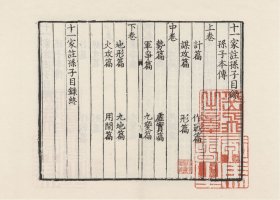 十一家註孫子目録
孫子本傳
上卷
計篇 作戰篇
謀攻篇 形篇
中卷
勢篇 虛實篇
軍爭篇 九變篇
行軍篇
下卷
地形篇 九地篇
火攻篇 用間篇
十一家註孫子目録終